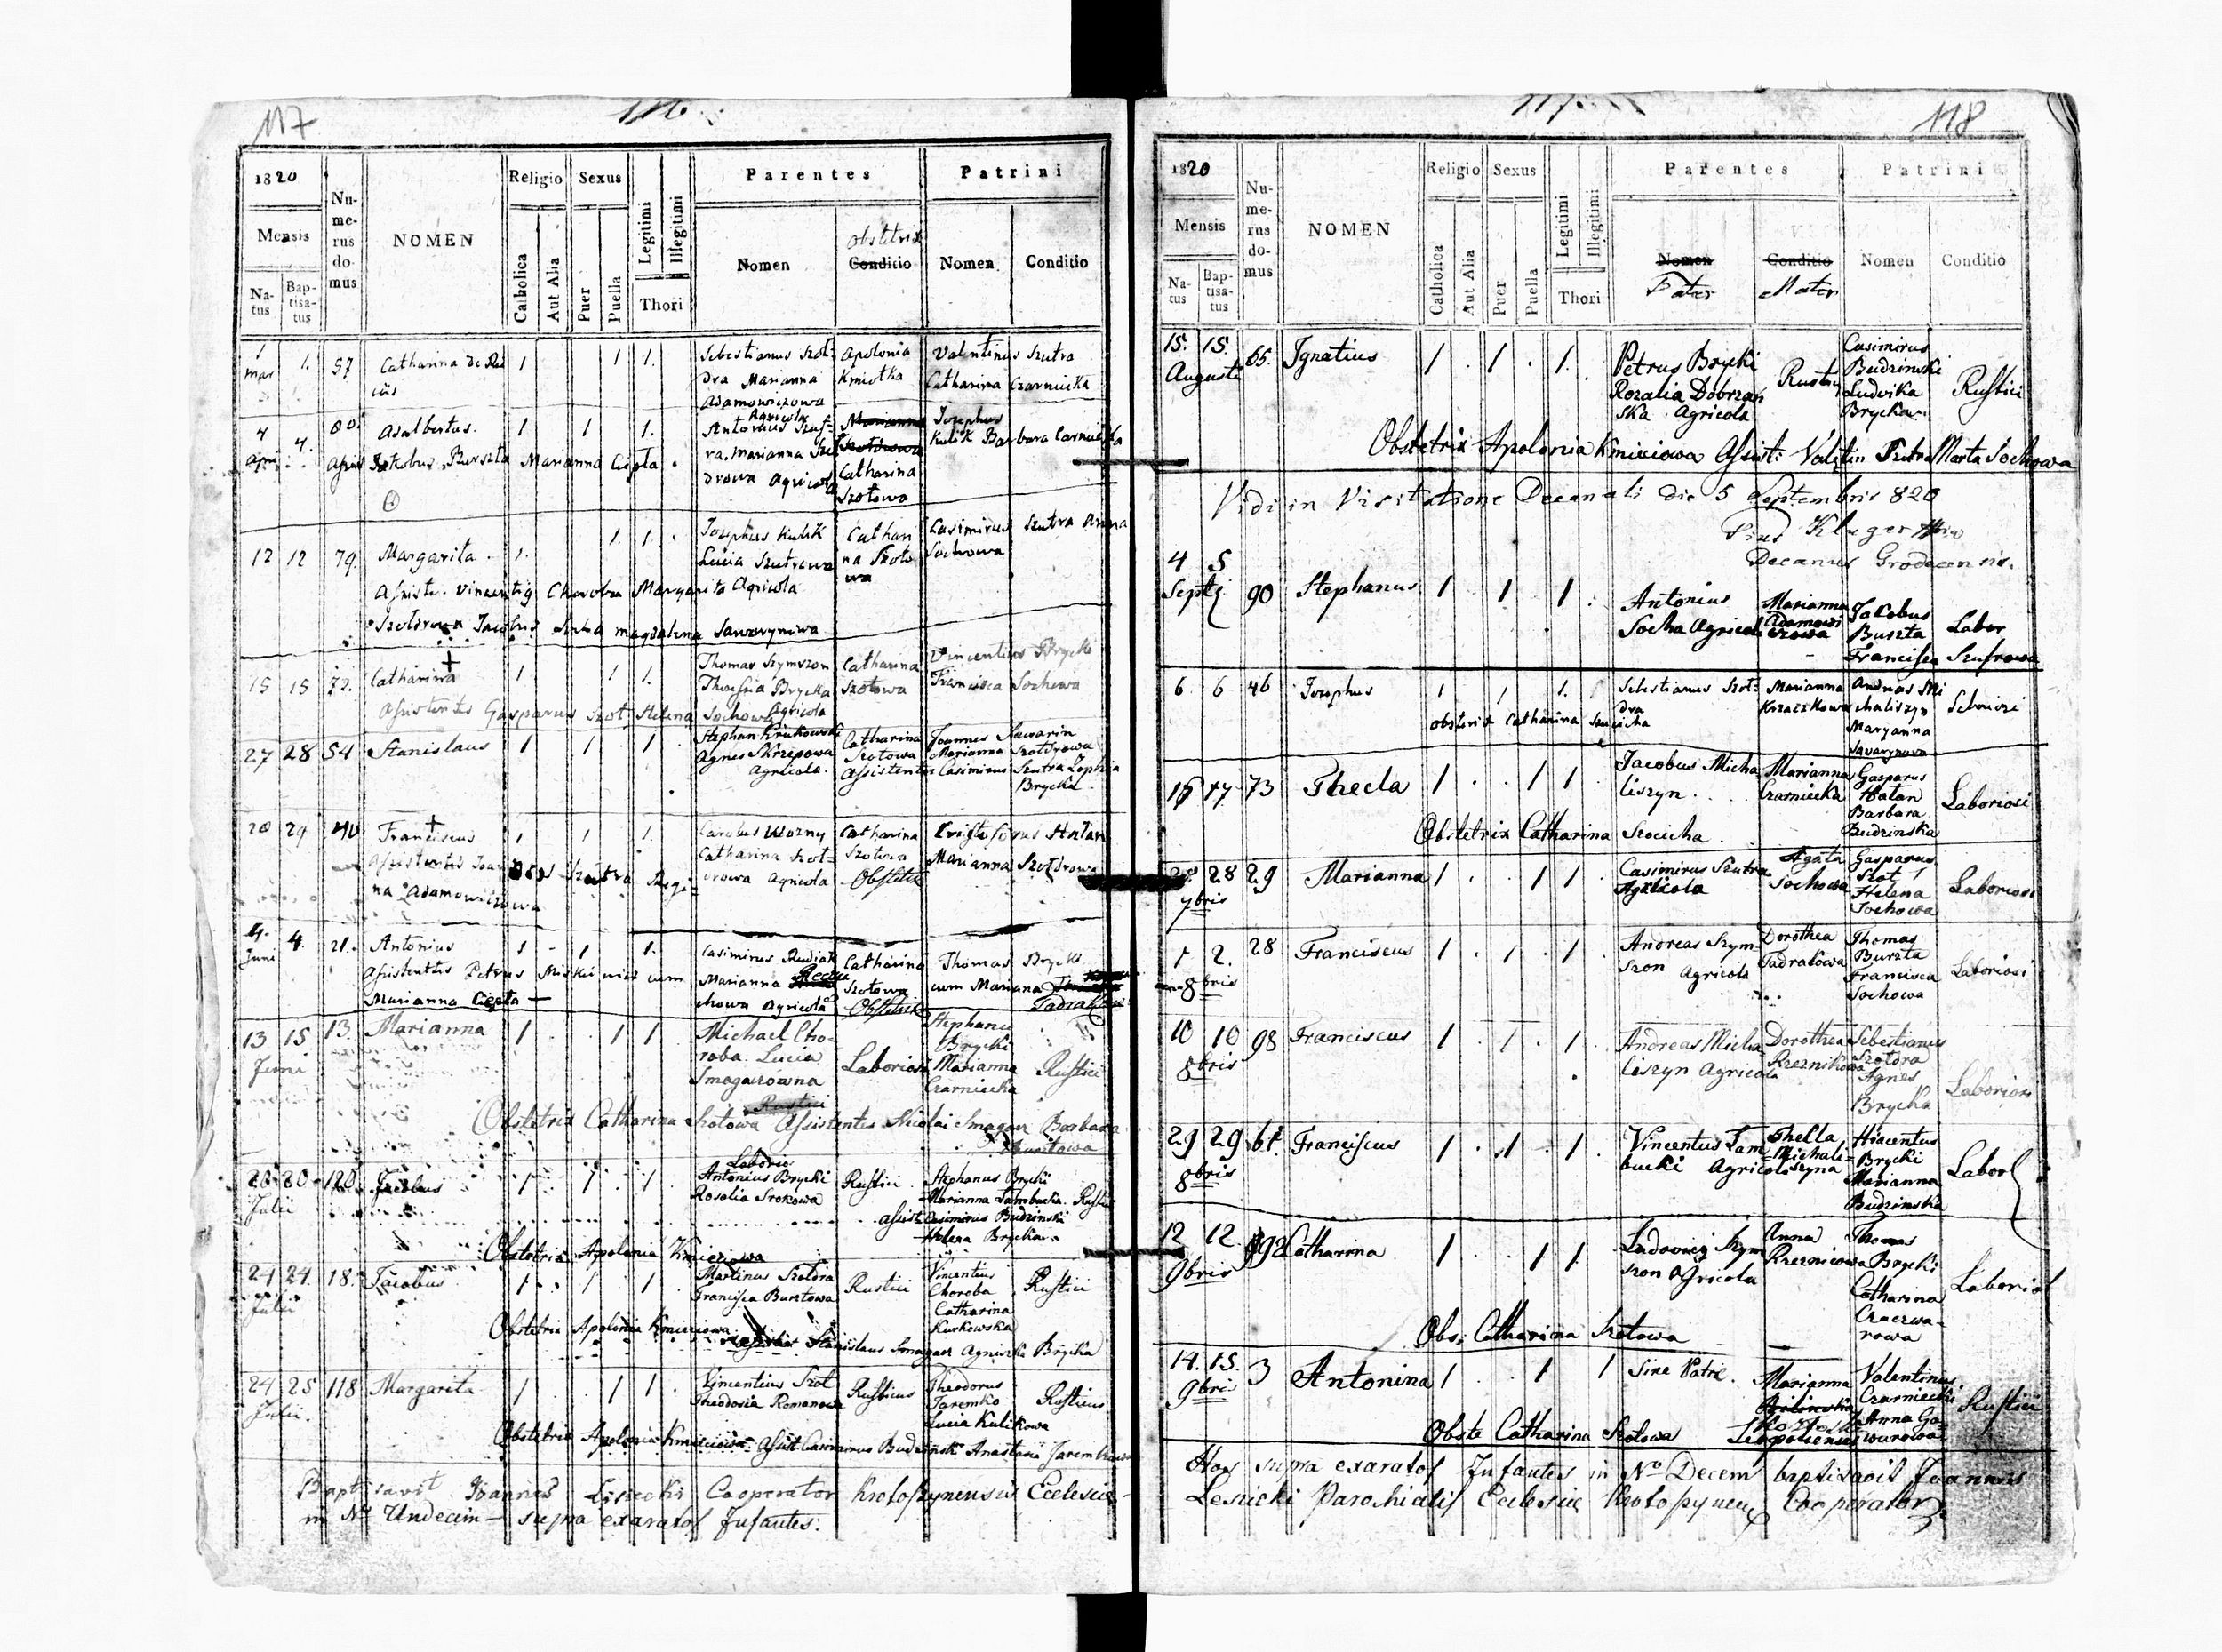 117
118
1820
Mensis
Natus
Baptisatus
Numerus domus
NOMEN
Religio
Catholica
Aut Alia
Sexus
Puer
Puella
Legitimi
Illegitimi
Thori
Parentes
Nomen
Obstetrix
Conditio
Patrini
Nomen
Conditio
1 Mar 1. 57 Catharina 1 1 1. Sebestianus Szot= Apolonia Valentinus Szutra
dra Marianna Kmiotka Catharina Czarniecka
Adamowiczowa
Agricola
4 4. 80. Adalbertus. 1 1 1. Antonius Marianna Josephus
Jakobus Burszta Marianna Ciepla Kulik Barbara
drowa Agricola Catharina
Szotowa
12 12 79. Margarita. 1. 1. 1. Josephus Kulik Catharina Casimirus Szutra Anna
Lucia Szutrowa Szotowa Sochowa
Choroba Margarita Agricola
Szotdrowa Jacobus Socha Magdalena Sawaryniwa
15 15 72. Catharina 1 1 1. Thomas Szymszon Catharina Vincentius Brycki
Brycka Szotowa Francisca Sochowa
Asistentes Gasparus Szot Helena Sochowa Agricola
27 28 54 Stanislaus 1 1 1. Stephan Krukowski Catharina Joannes Sawarin
Agnes Skrzepowa Szotowa Marianna Szotdrowa
Agricola. Assistentes Casimirus Szutra Zophia
Brycka
28 29 40 Franciscus 1 1 1. Carolus Wozny Catharina Cristoforus Hatan
Catharina Szot= Szotowa Marianna Szotdrowa
drowa Agricola Obstetrix
na Adamowiczowa
4. Juni 4. 21. Antonius 1 - 1 1. Casimirus Rudiak Catharina Thomas Brycki
Asistentes Petrus cum Marianna Szotowa cum Mariana
Marianna Ciepla — chowa Agricola Obstetrix
13 15 13. Marianna 1 1 1 Michael Cho= Laboriosi Stephanus Rustici
Juni roba. Lucia Brycki
Smagarowna Marianna
Czarniecka
Rustici
Obstetrix Catharina Szotowa Assistentes Nicolai Smagacz Barbara
20 20 120. Jacobus 1 1 1 Laborio Rustici Stephanus Brycki
Julii Antonius Brycki Marianna Tambucka. Rustici
Rosalia Srokowa
asist: Casimirus Budzinski
Helena Bryckaw.
Obstetrix Apolonia Kmieciowa
24 24. 18. Jacobus 1 1 1 Martinus Szotdra Rustici Vincentius Rustici
Julii Francisca Bursztowa Choroba
Catharina
Kurkowska
Obstetrix Apolonia Kmieciowa Stanislaus Smagacz Agniszka Brycka
24 25 118 Margarita 1 1 1 Vincentius Szot Rusticus Theodorus Rusticus
Julii. Theodosia Romanowa Jaremko
Lucia Kulikowa
Obstetrix Apolonia Kmieciowa. Asist Casimirus Budzinski Anastasia
Baptisavit Joannes Lisecki Cooperator Krotoszynensis Ecclesiae
in No Undecim supra exaratos Infantes.
1820
Mensis
Natus
Baptisatus
Numerus domus
NOMEN
Religio
Catholica
Aut Alia
Sexus
Puer
Puella
Legitimi
Illegitimi
Thori
Parentes
Nomen
Pater
Conditio
Mater
Patrini
Nomen
Conditio
15. 15. 65. Ignatius 1 1 1. Petrus Brycki Rustici Casimirus Rustici
Augusti Rozalia Dobrzan Budzinski
ska Agricola Ludvika
Bryckaw.
Obstetrix Apolonia Kmieciowa Asist: Valentin Szutra Marta Sochowa
Vidi in Visitatione Decanali die 5 Septembris 820
Pius Kluger
Decanus Grodecensis.
4 5 90 Stephanus 1 1 1. Antonius Marianna Jacobus Labor
Septr Socha Agricola Adamowi Burszta
czowa Francisca Szufrowa
6. 6 46 Josephus 1 1 1. Sebestianus Szot= Marianna Andreas Mi
dra chaliszyn
Obstetrix Catharina Maryanna
Savarynowa
16 17 73 Thecla 1 1 1 Jacobus Micha Marianna Gasparus Laboriosi
liszyn. Czarniecka Hatan
Barbara
Obstetrix Catharina Szocicha Budzinska
28 28 29 Marianna 1 1 1 Casimirus Szutra Agata Gasparus Laboriosi
7bris Agricola Sochowa Szot
Helena
Sochowa
1 2. 28 Franciscus 1 1 1 Andreas Szym Dorothea Thomas Laboriosi
8bris szon Agricola Tadrakowa Burszta
Francisca
Sochowa
10 10 98 Franciscus 1 1 1 Andreas Micha Dorothea Sebestianus Laboriosi
8bris liszyn Agricola Rzeznikowa Szotdra
Agnes
Brycka
29 29 61. Franciscus 1 1 1 Vincentus Tam Thella Hiacentus Labor
8bris bucki Agricola Michali= Brycki
szyna Marianna
Budzinska
12 12. 92 Catharina 1 1 1 Ludovicus Szym Anna Thomas Laborios
9bris szon Agricola Rzeznicowa Brycki
Catharina
Czaczwa=
rowa
Obs: Catharina Szotowa
14. 15. 3 Antonina 1 1 1 Sine Patre. Marianna Valentinus Rustici
9bris Czarniecki
Anna Ga=
Obste Catharina Szotowa Leopoliensis wurowa
Hos supra exaratos Infantes in No Decem baptisavit Joannes
Lesicki Parochialis Ecclesiae Krotoszynen Cooperator